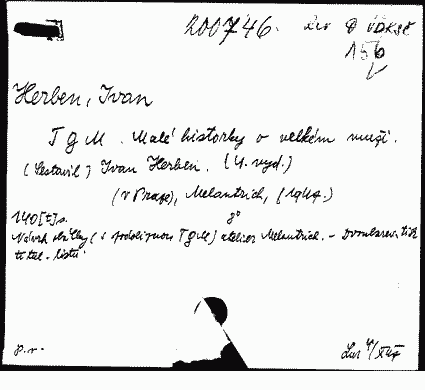 200746. Lir D ÚDKSČ
156
Herben, Ivan
TGM. Malé historky o velkém muži.
(Sestavil) Ivan Herben. (4. vyd.)
(V Praze), Melantrich, (1947.)
140 [1] s. 8°
Návrh obálky (s podobiznou TGM) atelier Melantrich. – Dvoubarev. tisk
titul. listu.